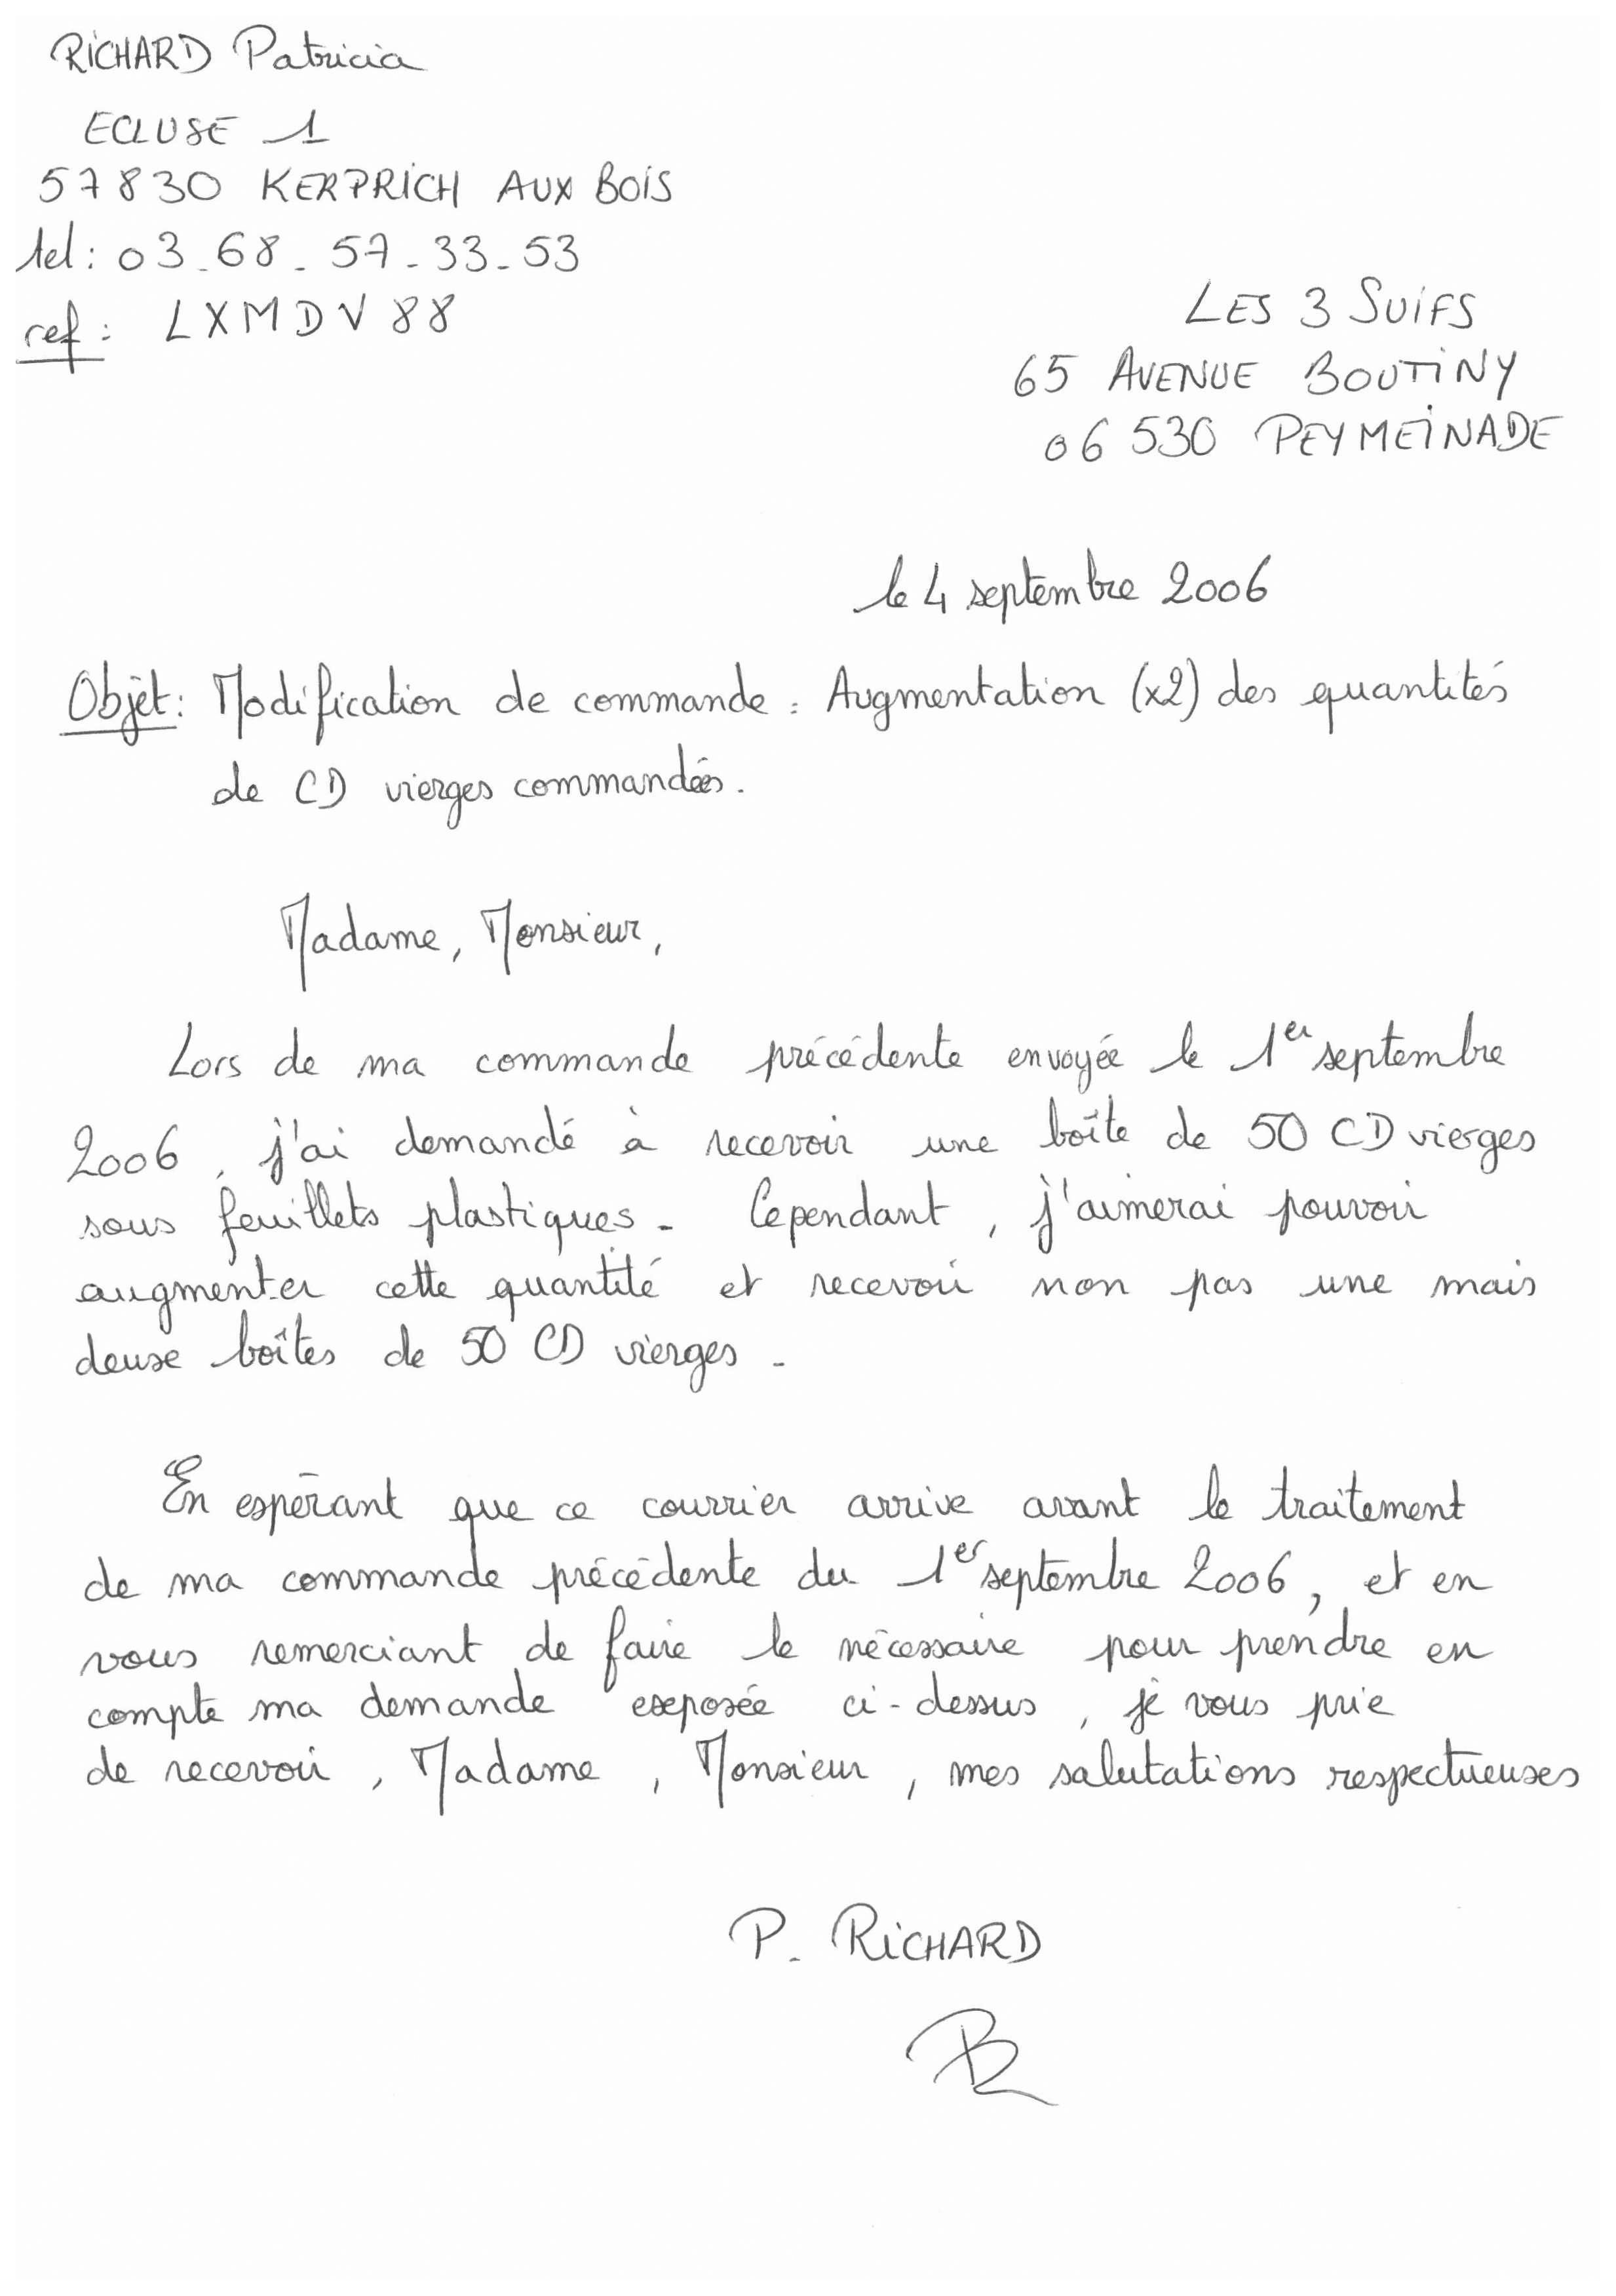 RICHARD Patricia
ECLUSE 1
57830 KERPRICH AUX BOIS
tel : 03.68.57.33.53
ref : LXMDV88
LES 3 SUIFS
65 AVENUE BOUTINY
06 530 PEYMEINADE
le 4 septembre 2006
Objet : Modification de commande : Augmentation (x2) des quantités
de CD vierges commandées.
Madame, Monsieur,
Lors de ma commande précédente envoyée le 1er septembre
2006, j'ai demandé à recevoir une boîte de 50 CD vierges
sous feuillets plastiques. Cependant, j'aimerai pouvoir
augmenter cette quantité et recevoir non pas une mais
deux boîtes de 50 CD vierges.
En espérant que ce courrier arrive avant le traitement
de ma commande précédente du 1er septembre 2006, et en
vous remerciant de faire le nécessaire pour prendre en
compte ma demande exposée ci-dessus, je vous prie
de recevoir, Madame, Monsieur, mes salutations respectueuses
P. RICHARD